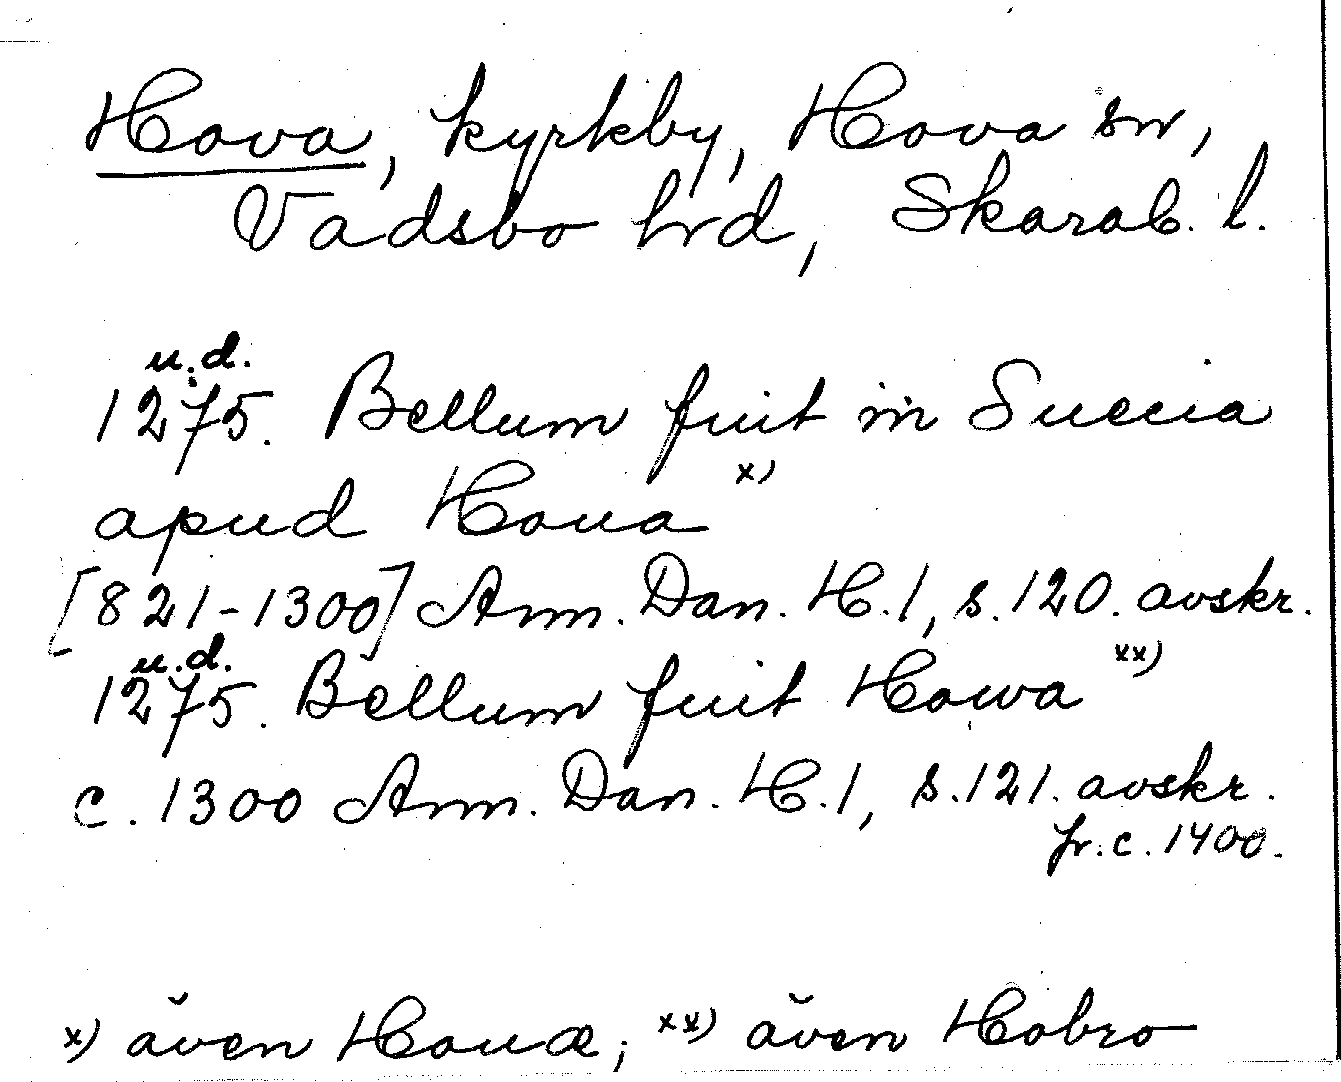 Hova, kyrkby, Hova sn,
Vadsbo hrd, Skarab. l.
u.d.
1275. Bellum fuit in Suecia
apud Houa x)
[821-1300] Ann. Dan. H. 1, s. 120. avskr.
u.d.
1275. Bellum fuit Howa xx)
c. 1300 Ann. Dan. H. 1, s. 121. avskr.
fr. c. 1400.
x) även Houæ; xx) även Hobro